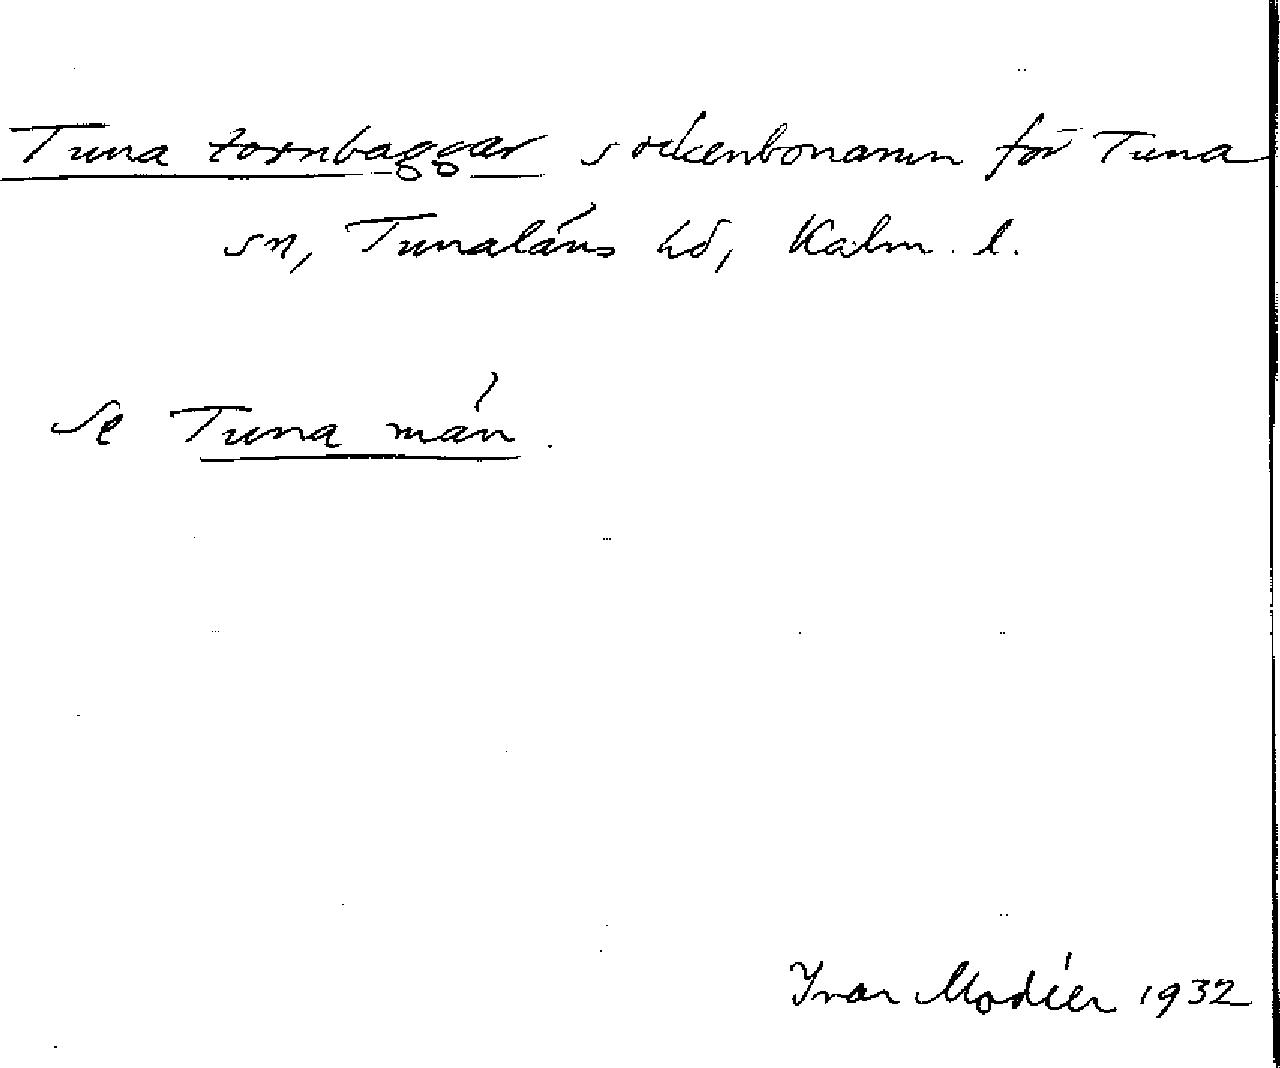 Tuna tornbaggar sockenbonamn för Tuna
sn, Tunaläns hd, Kalm. l.
Se Tuna män.
Ivar Modéer 1932